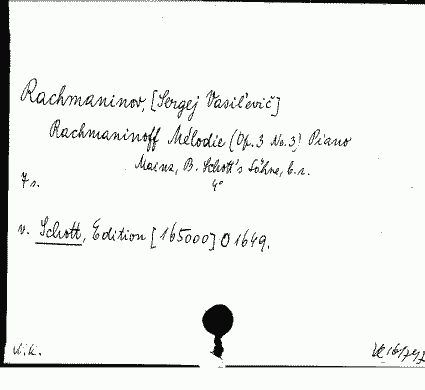 Rachmaninov, [Sergej Vasil'evič]
Rachmaninoff Mélodie (Op. 3 No. 3) Piano
Mainz, B. Schott's Söhne, b.r.
7 s. 4°
v. Schott, Edition [165000] 01649.
N.k.